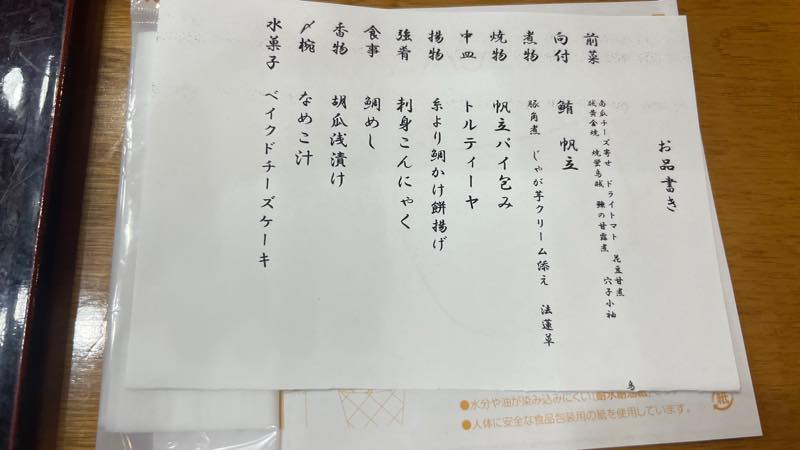 お品書き
前菜
南瓜チーズ寄せ ドライトマト 花豆甘煮
賊黄金焼 焼蛍烏賊 鰊の甘露煮 穴子小袖
向付 鮪 帆立
煮物 豚角煮 じゃが芋クリーム添え 法蓮草
焼物 帆立パイ包み
中皿 トルティーヤ
揚物 糸より鯛かけ餅揚げ
強肴 刺身こんにゃく
食事 鯛めし
香物 胡瓜浅漬け
〆椀 なめこ汁
水菓子 ベイクドチーズケーキ
烏
●水分や油が染み込みにくい
●人体に安全な食品包装用の紙を使用しています。
紙